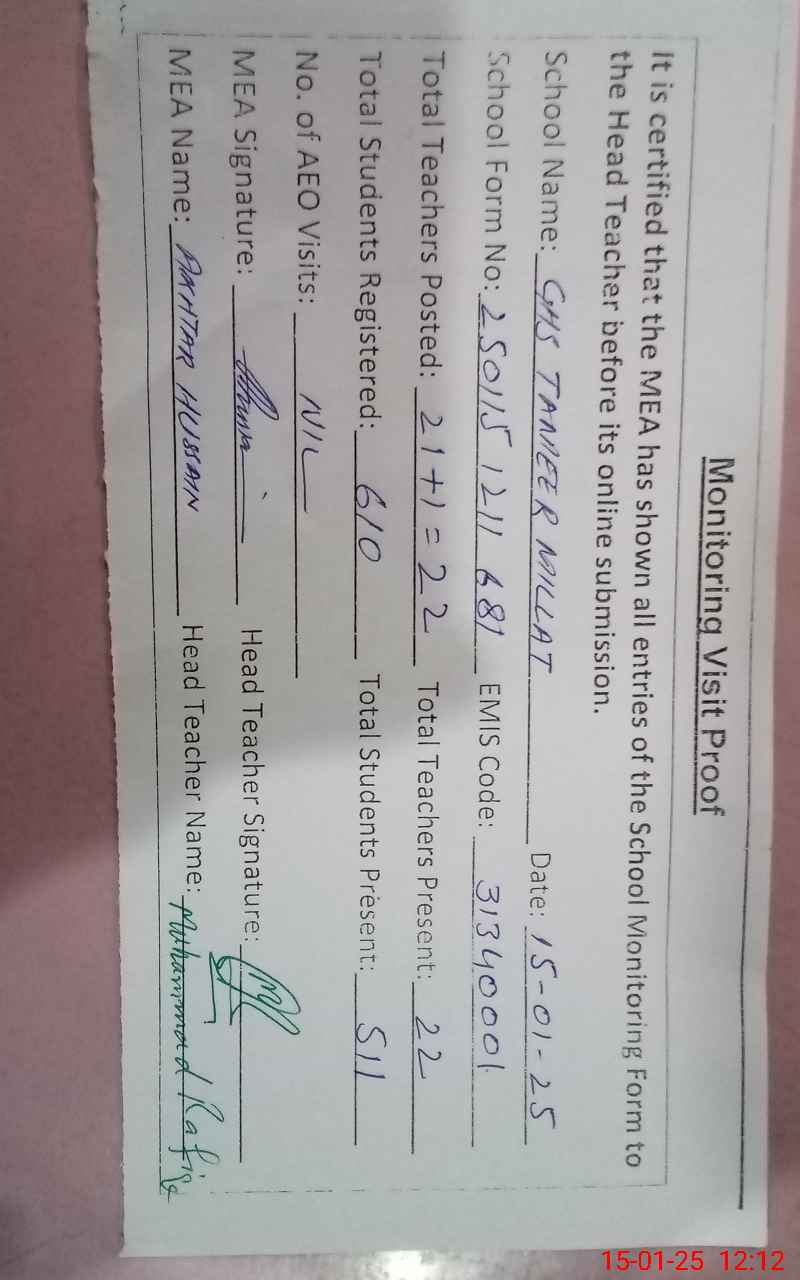 Monitoring Visit Proof
It is certified that the MEA has shown all entries of the School Monitoring Form to
the Head Teacher before its online submission.
School Name: GHS TAMEER MILLAT Date: 15-01-25
School Form No: 2501151211681 EMIS Code: 31340001
Total Teachers Posted: 21+1=22 Total Teachers Present: 22
Total Students Registered: 610 Total Students Present: 511
No. of AEO Visits: NIL
MEA Signature: Head Teacher Signature:
MEA Name: AKHTAR HUSSAIN Head Teacher Name: Muhammad Rafiq
15-01-25 12:12